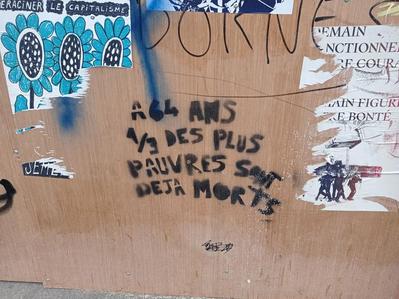 ÉRACINER LE CAPITALISME
ORNE
A 64 ANS
1/3 DES PLUS
PAUVRES SONT
DEJA MORTS
EMAIN
NCTIONNER
RE COURA
MAIN FIGUR
RE BONTÉ
JEME